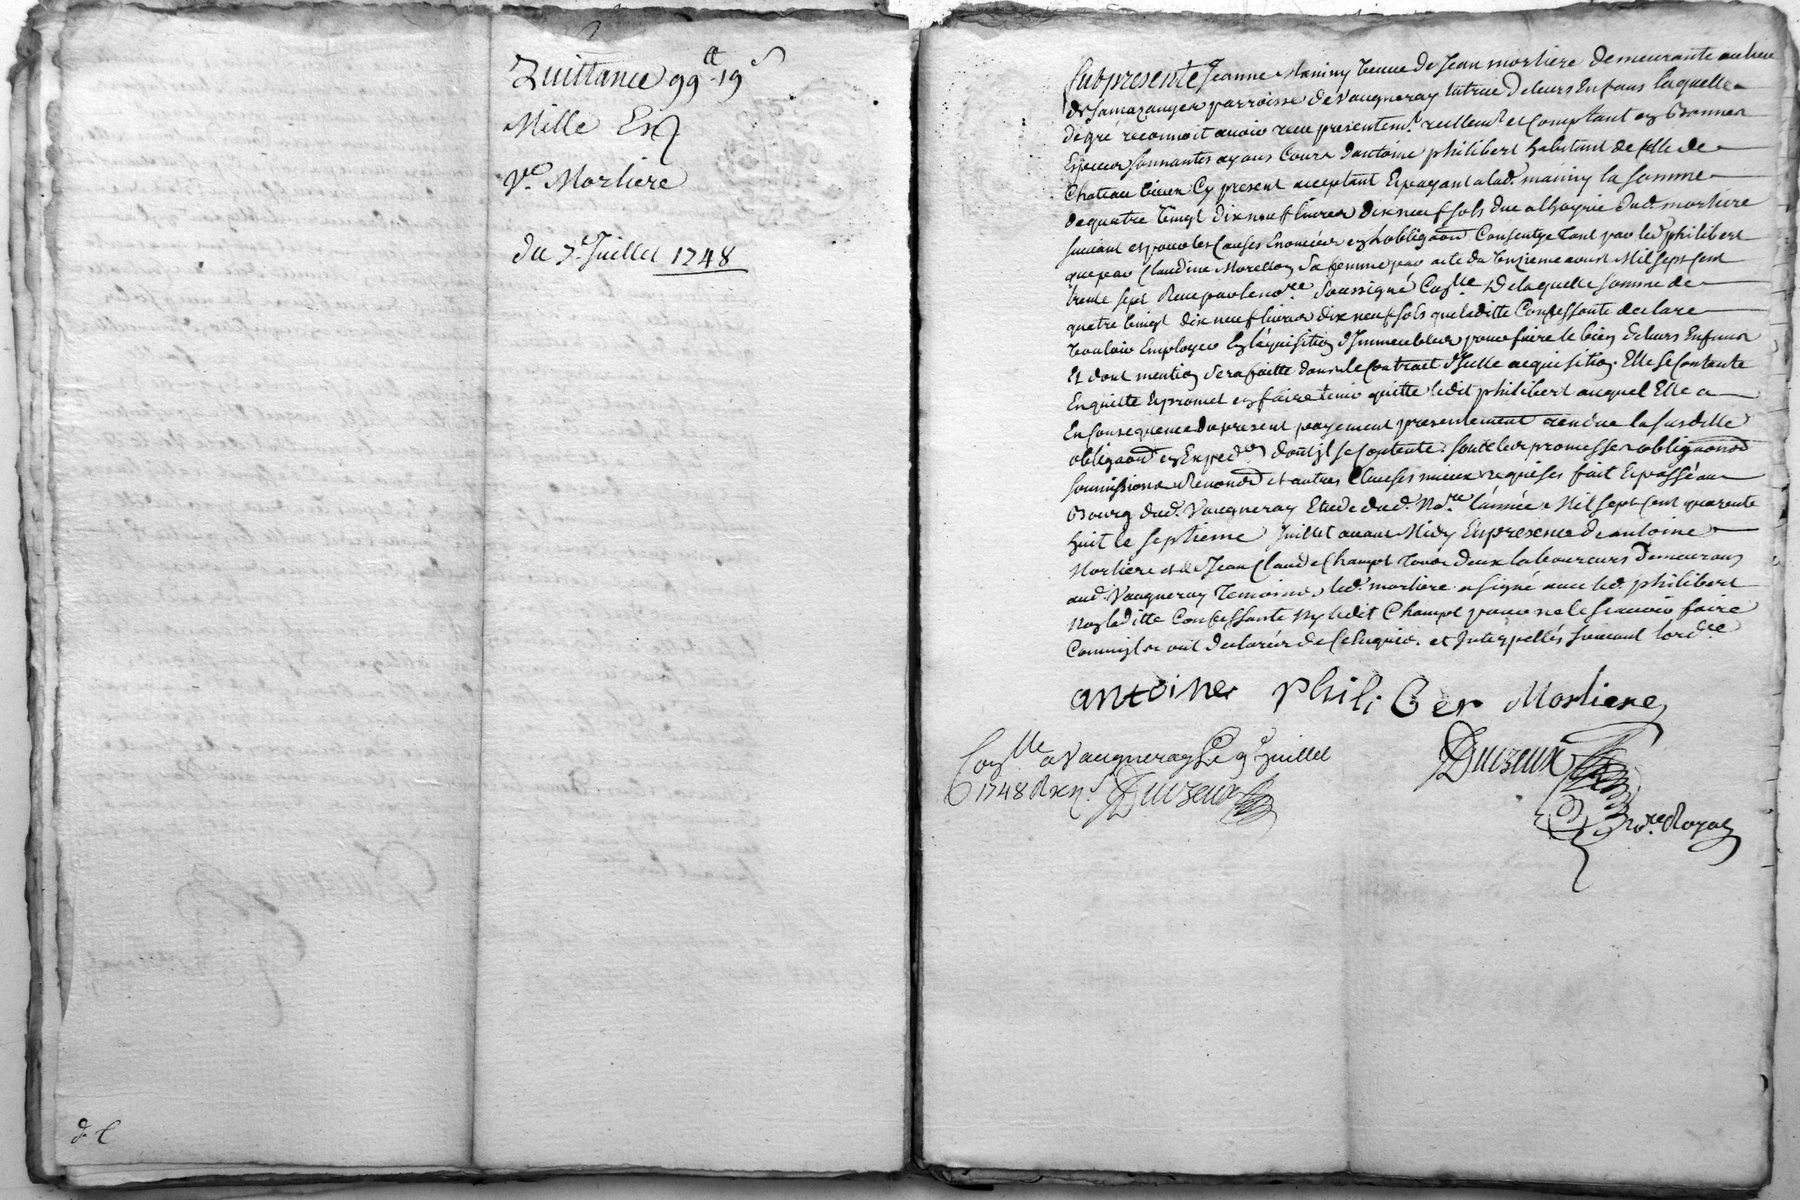 Quittance 99tt 19s
Mille
Ve. Morliere
du 7e Juillet 1748
fut presente Jeanne Mainy veuve de Jean morliere demeurante au lieu
de parroisse de Vaugneray tutrice de leurs Enfans laquelle
de gré reconnoit avoir receu presentemt. reellemt. et Comptant en Bonnes
Espeices sonnantes ayans Cours d'antoine philibert habitant de
Chateau vieux Cy present acceptant Et payant a lad. mainy la somme
de quatre vingt dix neuf livres dix neuf sols due a l'hoyrie dud. morliere
suivant et pour les Causes Enoncées en l'obligaon. Consentye tant par led. philibert
que par Claudine Morellon sa femme par acte du aoust Mil sept Cent
trente sept Receu par le nore. soussigné Conlle. De laquelle somme de
quatre vingt dix neuf livres dix neuf sols que laditte Confessante declare
vouloir Employer En l'acquisition d'Immeubles pour faire le bien de leurs Enfans
Et dont mention sera faitte dans le Contract d'Icelle acquisition. Elle se Contente
En quitte Et promet en faire tenir quitte ledit philibert auquel Elle a
En Consequence du present payement presentement rendue la susditte
obligaon. en Exped.on dont il se Contente. sous leur promesses obligaons
soumissions Renonons. et autres Clauses mieux requises fait Et passé au
Bourg dud. Vaugneray Etude dud. Nore. l'année Mil sept Cent quarente
huit le septieme Juillet avant Midy En presence de antoine
Morliere et de Jean Claude Champt tous deux laboureurs Demeurans
aud. Vaugneray temoins, led. morliere a signé avec led. philibert
Non laditte Confessante Ny ledit Champt pour ne le sçavoir faire
Comm'ils ont declarés de ce Enquis. et Interpellés suivant l'ordce
antoine philiber Morliere
Conlle a Vaugneray Le 9e Juillet
1748 R
Duizeux
Duizeux
nore. Royal